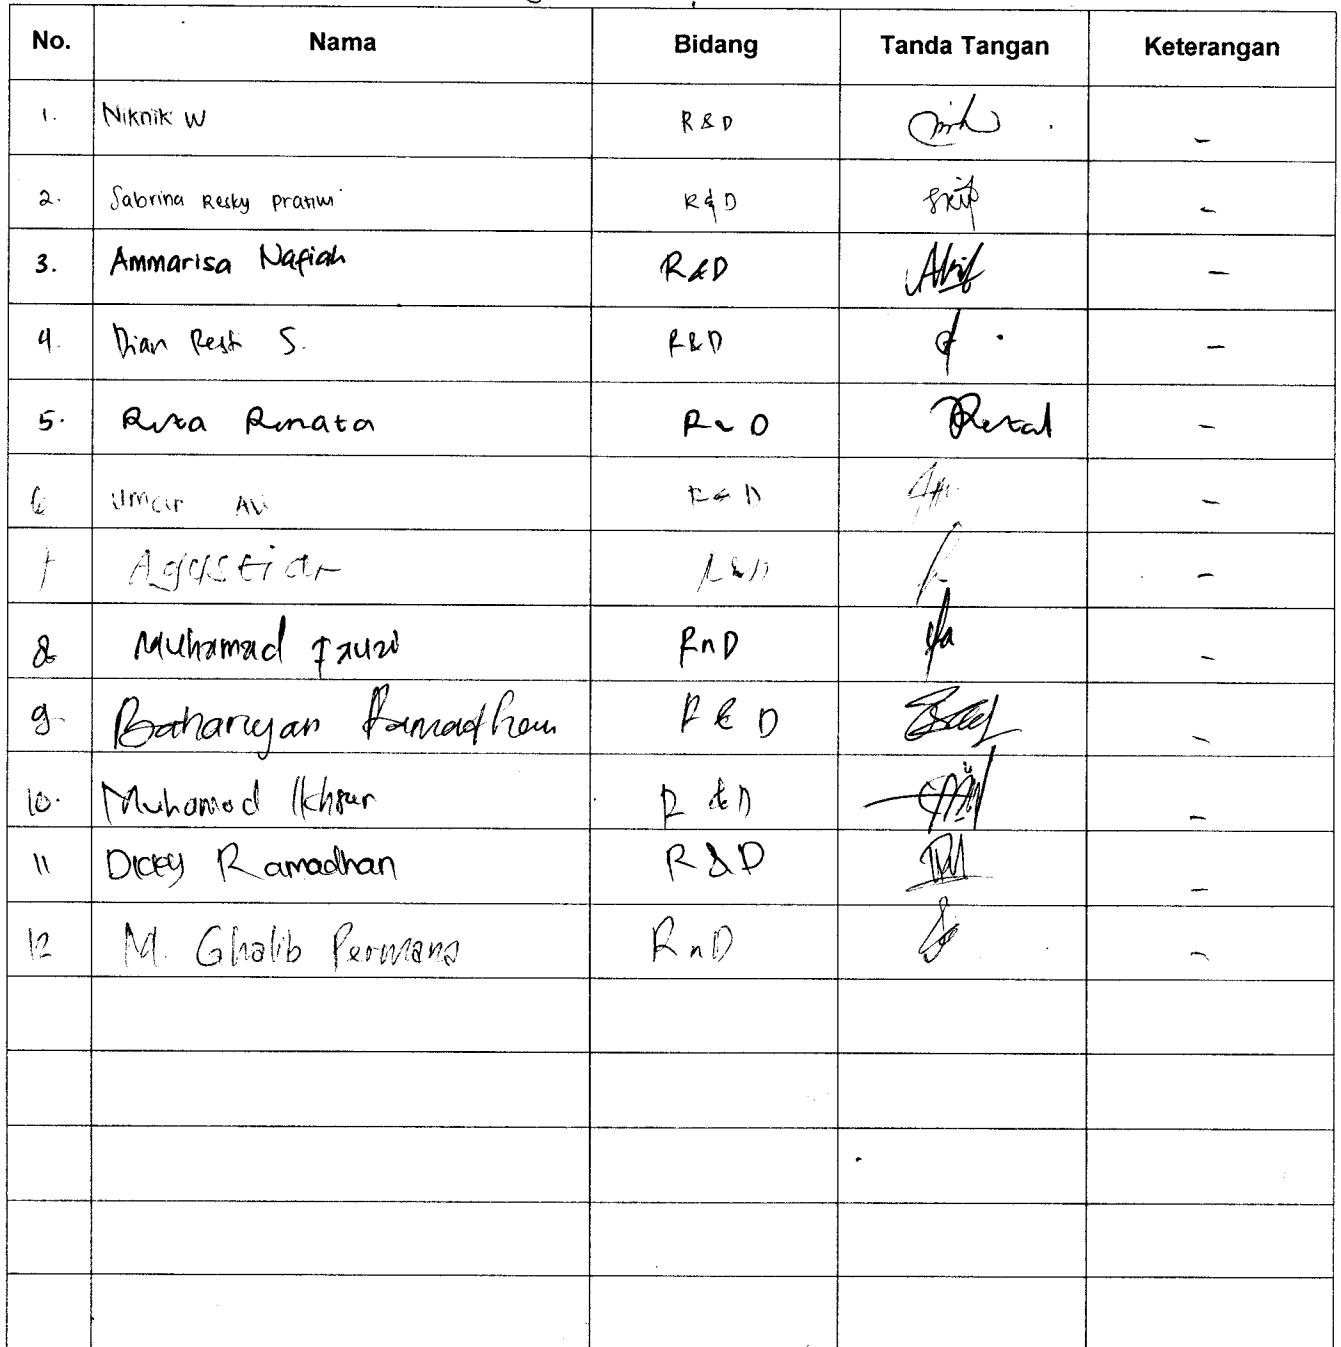 No. Nama Bidang Tanda Tangan Keterangan
1. Niknik W R & D -
2. Sabrina Resky Pratiwi R & D -
3. Ammarisa Nafiah R & D -
4. Dian Resti S. R & D -
5. Renata -
6 Umar R & D -
Agustiar R & D -
8. Muhamad Fauzi RnD -
9. Ramadhan R & D -
10. Muhamad R & D -
11 Dicky Ramadhan R & D -
12 M. Ghalib Permana RnD -